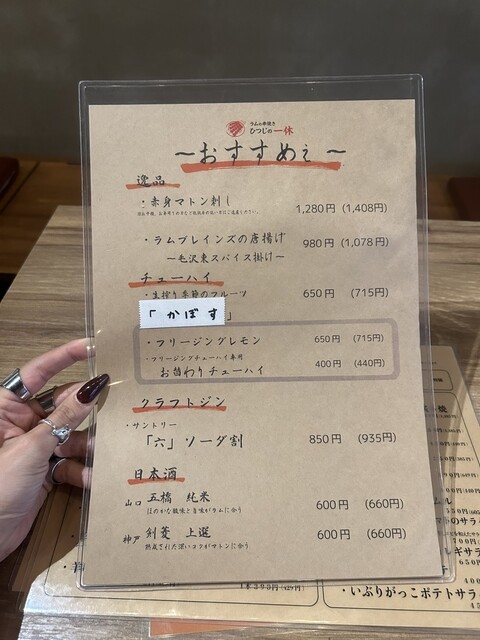 ラムの串焼き
ひつじの一休
～おすすめぇ～
逸品
・赤身マトン刺し 1,280円 (1,408円)
・ラムブレインズの唐揚げ 980円 (1,078円)
～毛沢東スパイス掛け～
チューハイ
・生搾り季節のフルーツ 650円 (715円)
「かぼす」
・フリージングレモン 650円 (715円)
・フリージングチューハイ専用 400円 (440円)
お替わりチューハイ
クラフトジン
・サントリー
「六」ソーダ割 850円 (935円)
日本酒
山口 五橋 純米 600円 (660円)
ほのかな酸味と旨味がラムに合う
神戸 剣菱 上選 600円 (660円)
熟成された深いコクがマトンに合う
・いぶりがっこポテトサラ